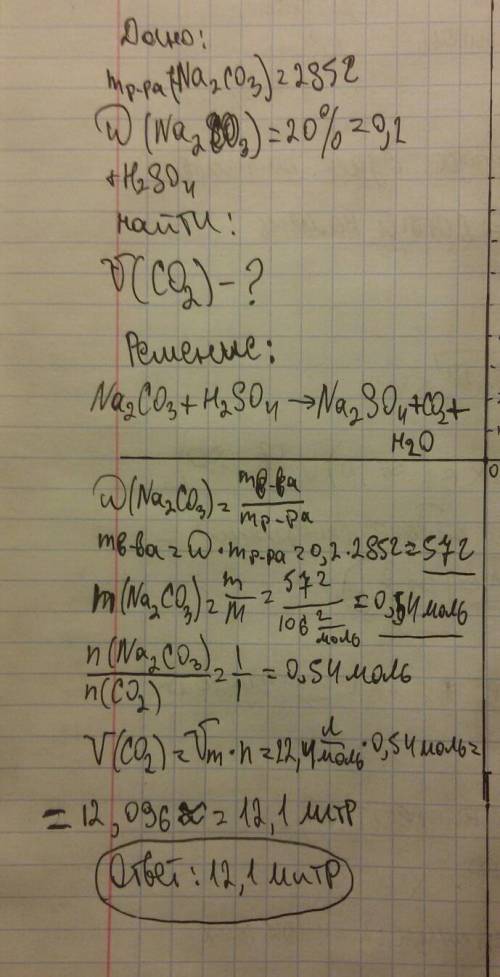 Дано:
mр-ра(Na2CO3)=285г
W(Na2CO3)=20%=0,2
+H2SO4
Найти:
V(CO2)-?
Решение:
Na2CO3+H2SO4→Na2SO4+CO2+
H2O
W(Na2CO3)=mв-ва/mр-ра
mв-ва=W·mр-ра=0,2·285г=57г
m(Na2CO3)=m/M=57г/106г/моль=0,54моль
n(Na2CO3)/n(CO2)=1/1=0,54моль
V(CO2)=Vm·n=22,4л/моль·0,54моль=
=12,096≈=12,1литр
Ответ:12,1литр